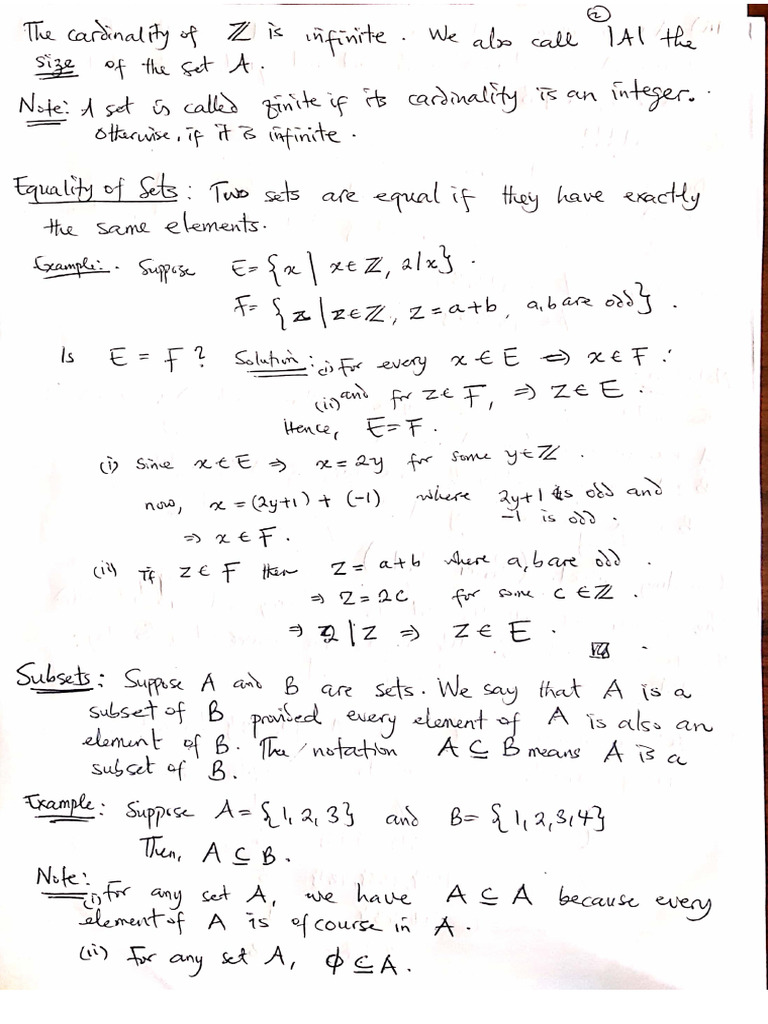 ②
The cardinality of ℤ is infinite. We also call |A| the
size of the set A.
Note: A set is called finite if its cardinality is an integer.
Otherwise, if it is infinite.
Equality of Sets: Two sets are equal if they have exactly
the same elements.
Example:. Suppose E = {x | x ∈ ℤ, 2|x}.
F = {z | z ∈ ℤ, z = a+b, a,b are odd}.
Is E = F? Solution: (i) For every x ∈ E ⇒ x ∈ F.
(ii) and for z ∈ F, ⇒ z ∈ E.
Hence, E = F.
(i) Since x ∈ E ⇒ x = 2y for some y ∈ ℤ.
now, x = (2y+1) + (-1) where 2y+1 is odd and
-1 is odd.
⇒ x ∈ F.
(ii) If z ∈ F then z = a+b where a,b are odd.
⇒ z = 2c for some c ∈ ℤ.
⇒ 2|z ⇒ z ∈ E.
Subsets: Suppose A and B are sets. We say that A is a
subset of B provided every element of A is also an
element of B. The notation A ⊆ B means A is a
subset of B.
Example: Suppose A = {1, 2, 3} and B = {1, 2, 3, 4}
Then, A ⊆ B.
Note:
(i) For any set A, we have A ⊆ A because every
element of A is of course in A.
(ii) For any set A, ϕ ⊆ A.